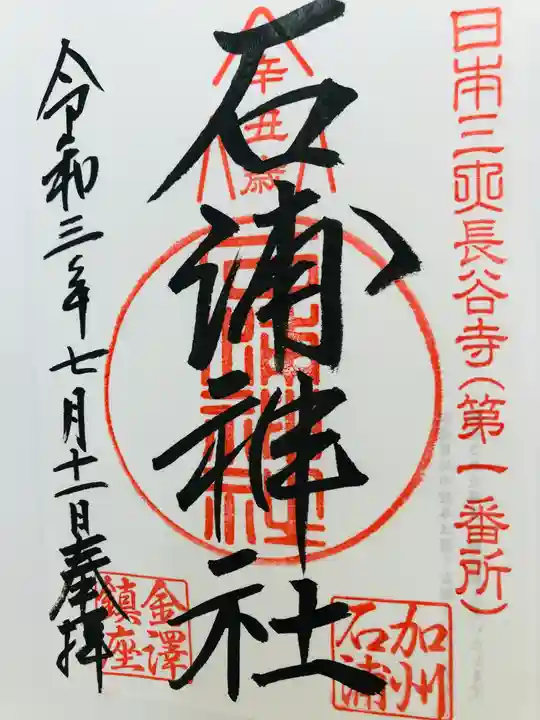 日本三所長谷寺(第一番所)
辛丑歳
石浦神社
石浦神社
加州
石浦
令和三年七月十一日奉拝
金澤
鎮座